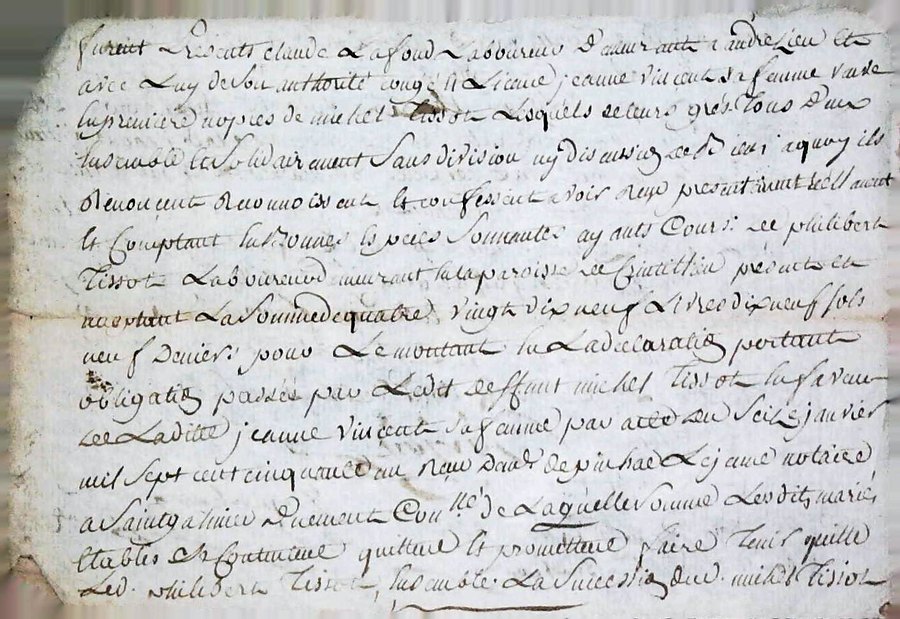 furent Présents claude Lafond Laboureur Demeurant a andrelieu Et
avec Luy de Son authorité congé Et Licance jeanne vincent sa femme veuve
En premiere nopces de michel Tissot Lesquels de leurs grés Tous Deux
Ensemble Et Solidairement Sans division ny discussion de Biens a quoy ils
Renoncent Reconnoissent Et confessent avoir Reçu presentement Réellement
Et Comptant En Bonnes Especes Sonnantes ayants Cours de philibert
Tissot Laboureur demeurant En la paroisse de présent Et
acceptant La Somme de quatre vingt dix neuf Livres dix neuf sols
neuf Deniers pour Le montant En La declaration portant
obligation passée par Ledit deffunt michel Tissot En faveur
de Laditte jeanne vincent sa femme par acte du Seize janvier
mil sept cent cinquante un Reçu Le jeune notaire
a Saint galmier Duement Con.llé de Laquelle Somme Lesdits mariés
Etablis Se Contentent quittent Et promettent faire Tenir quitte
Led. philibert Tissot, Ensemble La Succession dud. michel Tissot